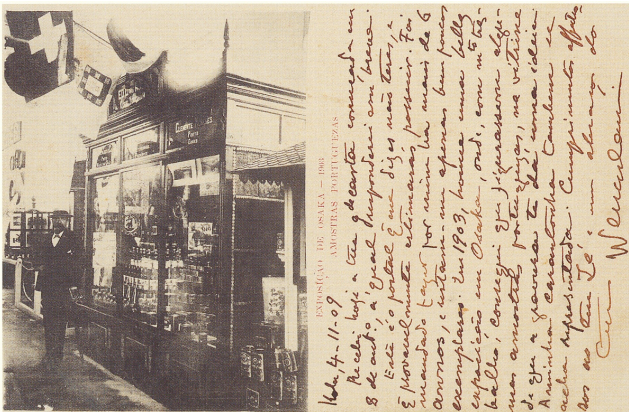 EXPOSIÇÃO DE OSAKA — 1903
AMOSTRAS PORTUGUEZAS
Kobe, 4-11-09
Recebi hoje a tua carta começada em
8 de a qual responderei em breve.
Este é o postal q me dizes não teres, e
q provavelmente estimarás possuir. Foi
mandado fazer por mim ha mais de 6
annos, e restam-me apenas bem poucos
exemplares. Em 1903, houve uma bella
exposição em Osaka, onde, com mto tra-
balho, consegui q figurassem algu-
mas amostras portuguezas, na vitrine
de que a gravura te dá uma ideia.
A minha carantonha tambem se
acha representada. Cumprimentos
ao teu Zé, um abraço do
Teu Wenceslau